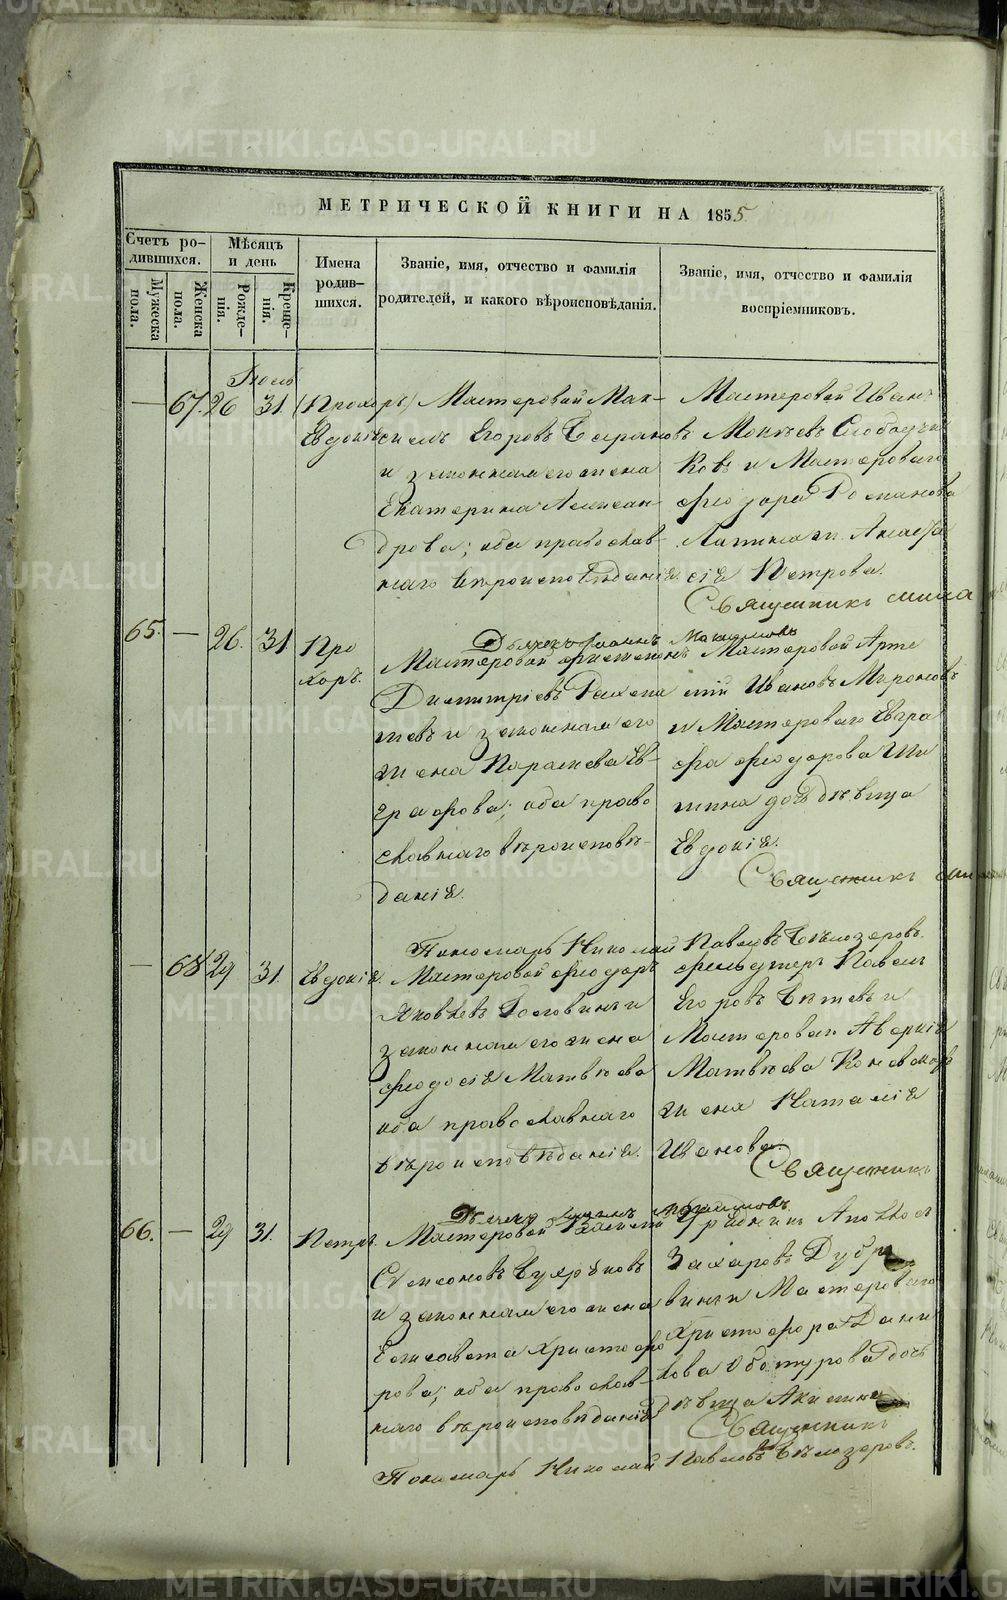 МЕТРИЧЕСКОЙ КНИГИ НА 1855
Счетъ ро-
дившихся.
Мужеска пола.
Женска пола.
Мѣсяцъ и день
Рожде-
нія.
Креще-
нія.
Имена родив-
шихся.
Званіе, имя, отчество и фамилія
родителей, и какого вѣроисповѣданія.
Званіе, имя, отчество и фамилія
воспріемниковъ.
Іюль
— 67. 26 31
(Прохоръ)
Евдокія
Мастеровой Мак-
симъ Егоровъ
и законная его жена
Екатерина Алексан-
дрова; оба православ-
наго вѣроисповѣданія.
Мастеровой Иванъ
Мокѣевъ Слободчи
ковъ и Мастероваго
Феодора Романова
Анаста
сія Петрова.
Священникъ
Дьячекъ Іоаннъ
65. — 26. 31
Про
хоръ.
Мастеровой
Димитріевъ
и законная его
жена Параскева Ев-
графова; оба право
славнаго вѣроисповѣ-
данія.
Мастеровой Арте
мій Ивановъ Мироновъ
и Мастероваго Евгра
фа Феодорова Ши
шкина дочь дѣвица
Евдокія.
Священникъ
Пономарь Николай Павловъ Бѣлозеровъ.
— 68 29 31.
Евдокія.
Мастеровой Феодоръ
Яковлевъ Головинъ и
законная его жена
Феодосія Матвѣева
оба православнаго
вѣроисповѣданія.
Фельдшеръ Павелъ
Егоровъ и
Мастероваго Аверкія
Матвѣева
жена Наталія
Иванова.
Священникъ
Дьячекъ Іоаннъ
66. — 29 31.
Петръ.
Мастеровой Василій
Симеоновъ
и законная его жена
Елисавета Христофо
рова; оба православ-
наго вѣроисповѣданія
Урядникъ
Захаровъ Дубро
винъ и Мастероваго
Христофора Дани
лова Обатурова дочь
дѣвица
Священникъ
Пономарь Николай Павловъ Бѣлозеровъ.
METRIKI.GASO-URAL.RU